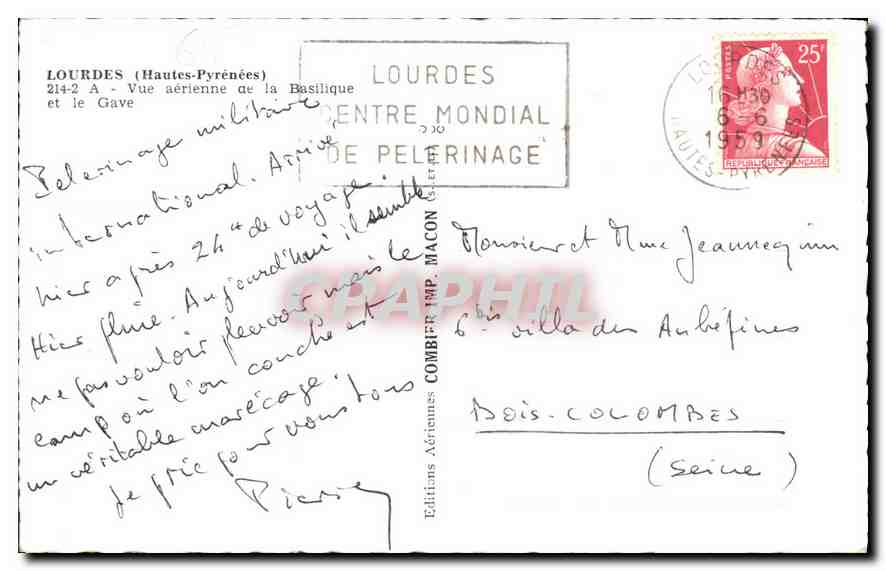 LOURDES (Hautes-Pyrénées)
214-2 A - Vue aérienne de la Basilique
et le Gave
LOURDES
CENTRE MONDIAL
DE PELERINAGE
LOURDES
16 H30
6-6
1959
HAUTES-PYRENEES
POSTES
25F
REPUBLIQUE FRANÇAISE
Pelerinage militaire
international. Arrivé
hier après 24h de voyage.
Hier pluie. Aujourd'hui il semble
ne pas vouloir pleuvoir mais le
camp où l'on couche est
un véritable marécage.
Je prie pour vous tous
Pierre
Editions Aériennes COMBIER IMP. MACON
CPAPHIL
Monsieur et Mme Jeannequin
6bis villa des Aubépines
BOIS-COLOMBES
(Seine)